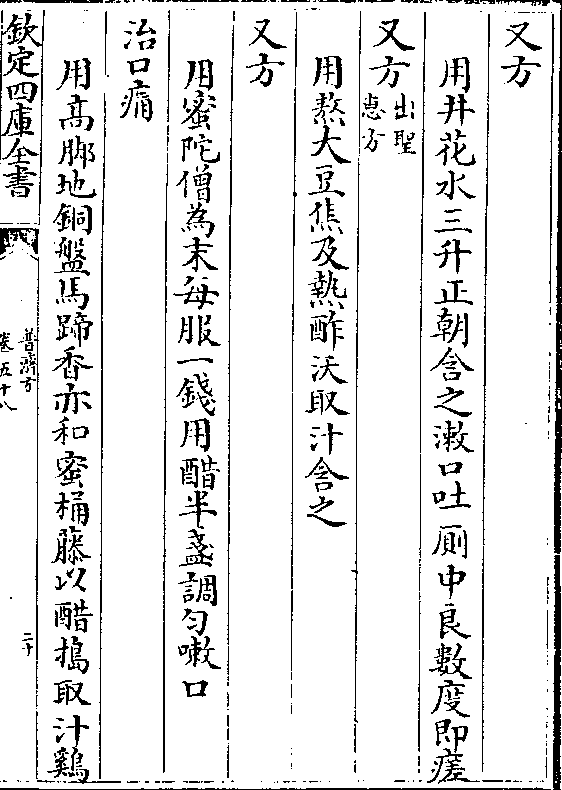 又方
用井花水三升正朝含之漱口吐厠中良數度即瘥
又方出聖惠方
用熬大豆焦及熱酢沃取汁含之
又方
用蜜陀僧為末每服一錢用醋半盞調勻嗽口
治口痛
用高脚地銅盤馬蹄香亦和蜜桶藤以醋搗取汁鷄
欽定四庫全書
普濟方
卷五十八
二十